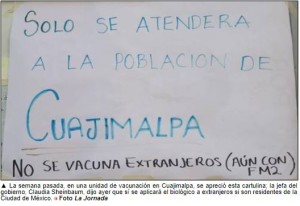 SOLO SE ATENDERA
A LA POBLACION DE
CUAJIMALPA
NO SE VACUNA EXTRANJEROS (AÚN CON)
FM2
▲ La semana pasada, en una unidad de vacunación en Cuajimalpa, se apreció esta cartulina; la jefa del
gobierno, Claudia Sheinbaum, dijo ayer que sí se aplicará el biológico a extranjeros si son residentes de la
Ciudad de México. Foto La Jornada